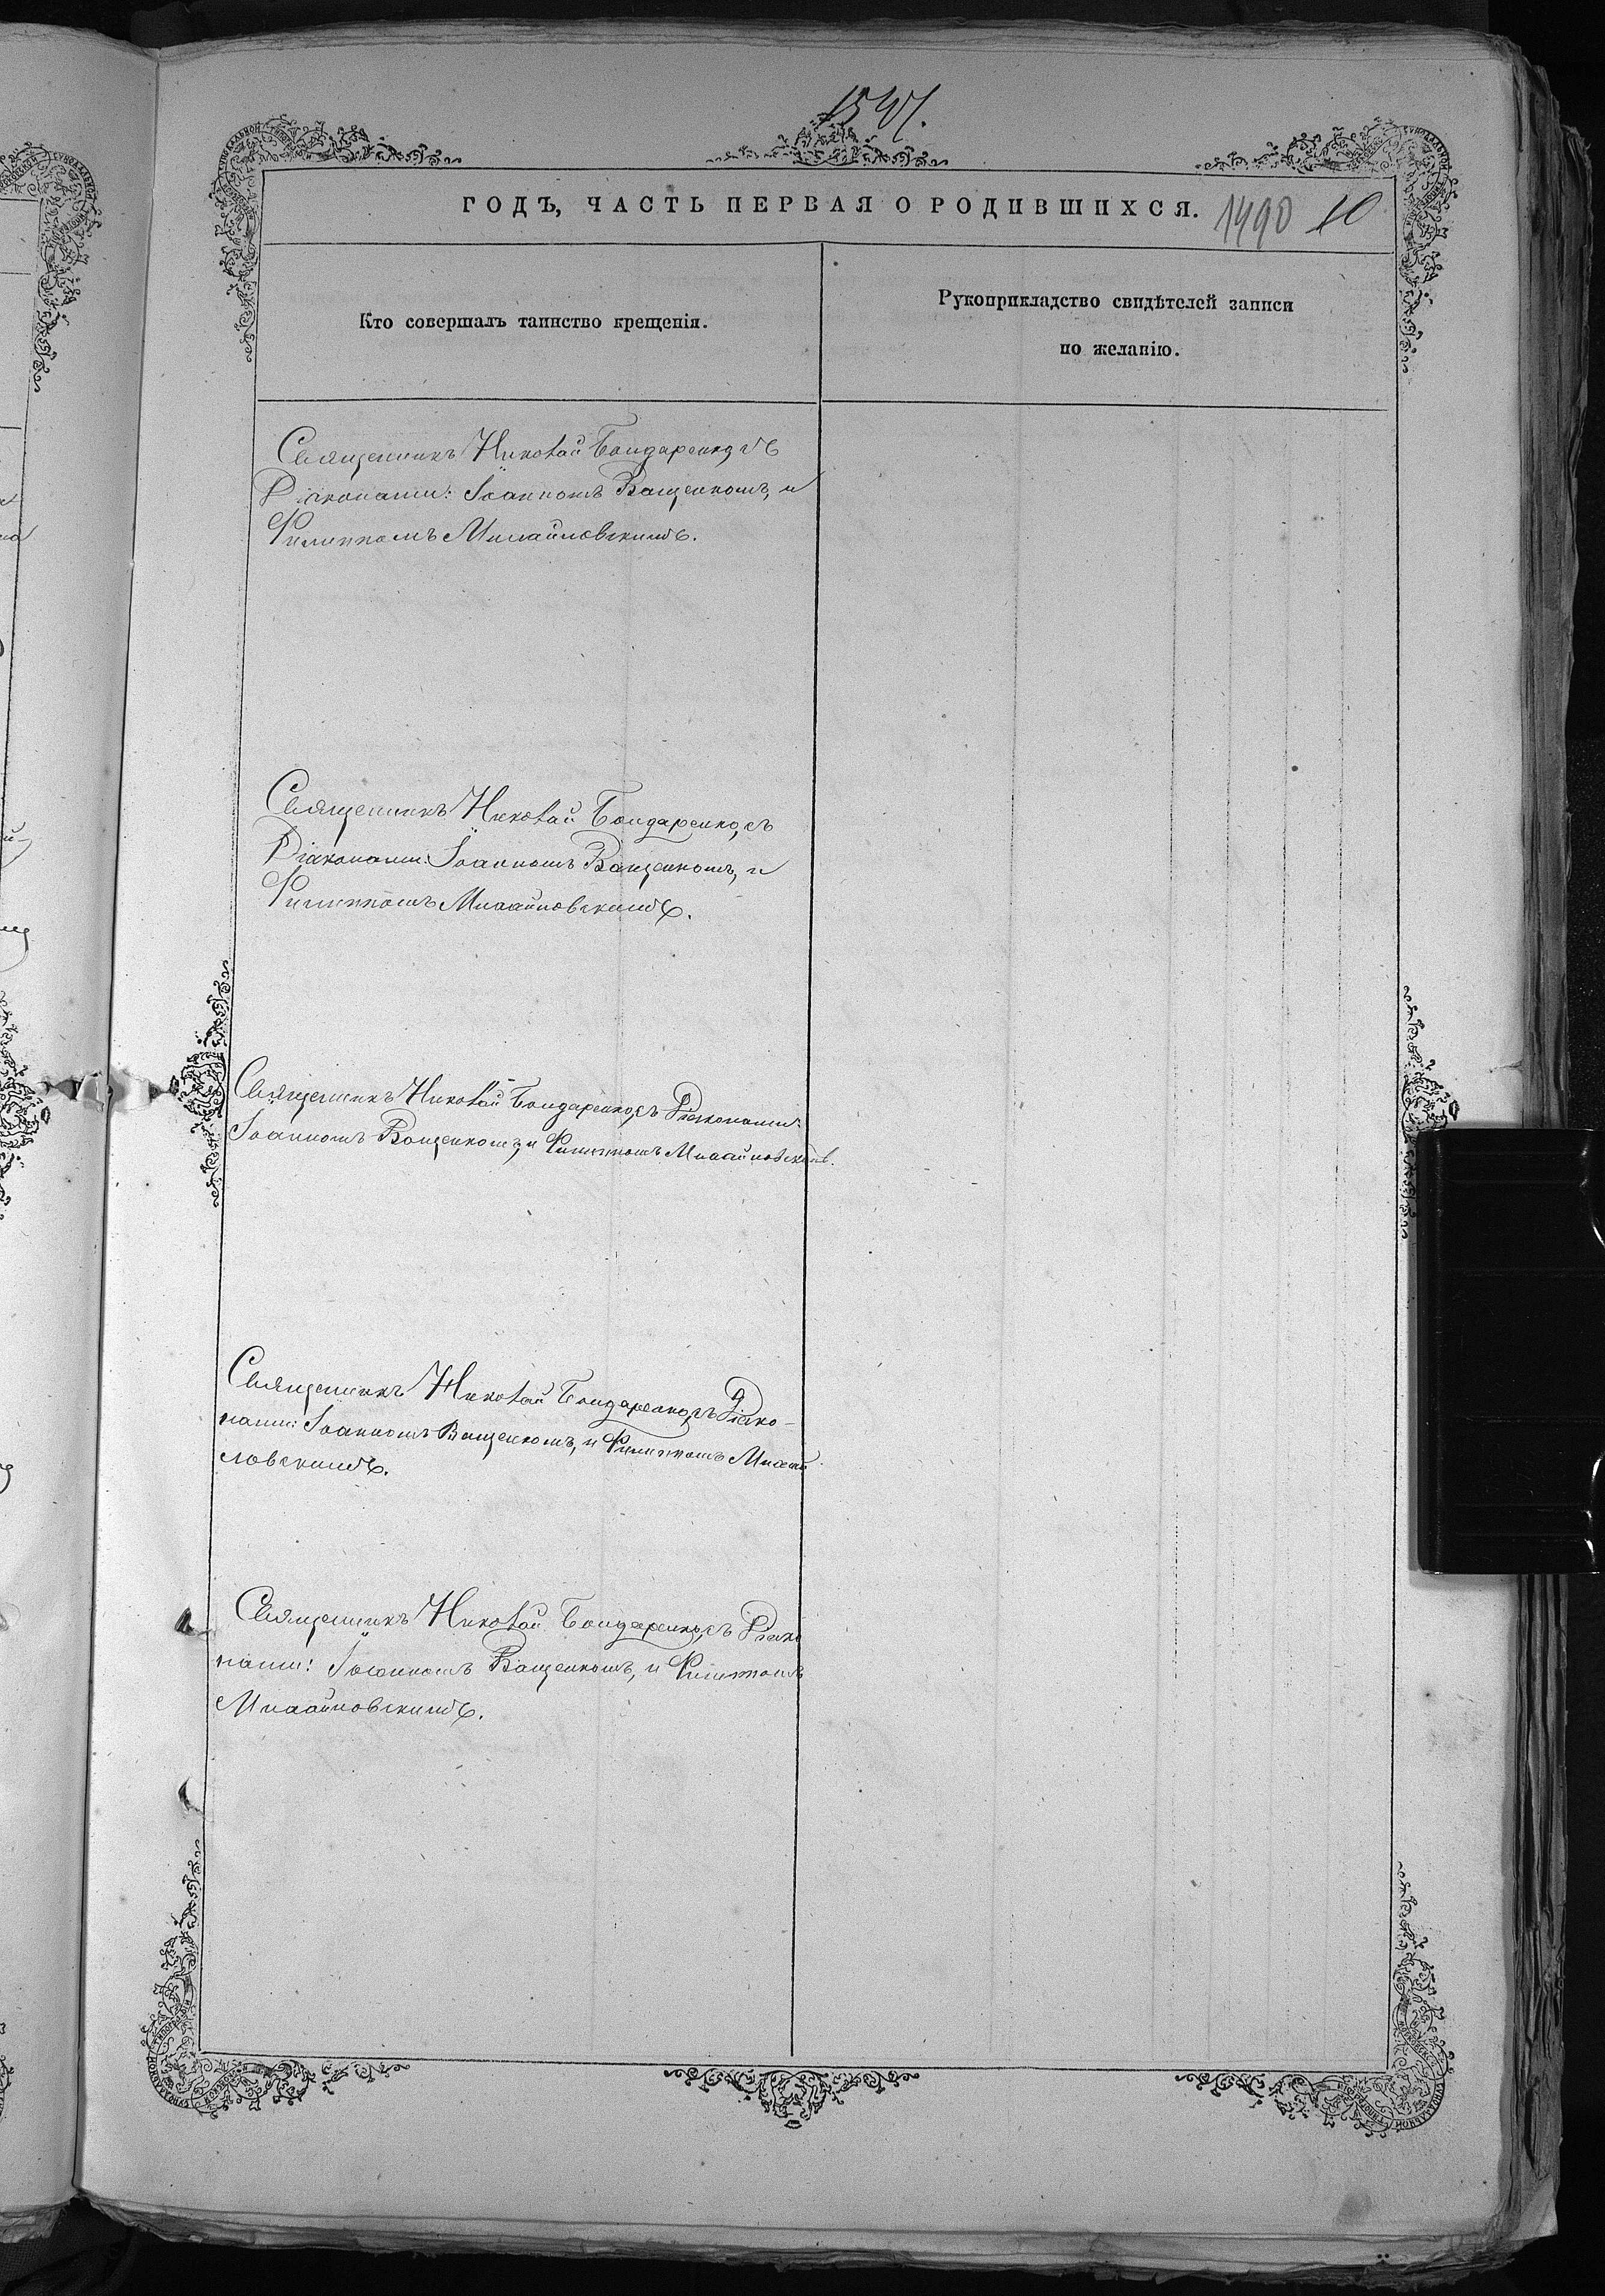 ГОДЪ, ЧАСТЬ ПЕРВАЯ О РОДИВШИХСЯ. 1490 10
Кто совершалъ таинство крещенія.
Рукоприкладство свидѣтелей записи
по желанію.
Священникъ Николай Бондаренко, съ
Діаконами: Іоанномъ Ващенкомъ, и
Филиппомъ Михайловскимъ.
Священникъ Николай Бондаренко, съ
Діаконами: Іоанномъ Ващенкомъ, и
Филиппомъ Михайловскимъ.
Священникъ Николай Бондаренко, съ Діаконами:
Іоанномъ Ващенкомъ, и Филиппомъ Михайловскимъ.
Священникъ Николай Бондаренко, съ Діако-
нами: Іоанномъ Ващенкомъ, и Филиппомъ Михай
ловскимъ.
Священникъ Николай Бондаренко, съ Діако
нами: Іоанномъ Ващенкомъ, и Филиппомъ
Михайловскимъ.